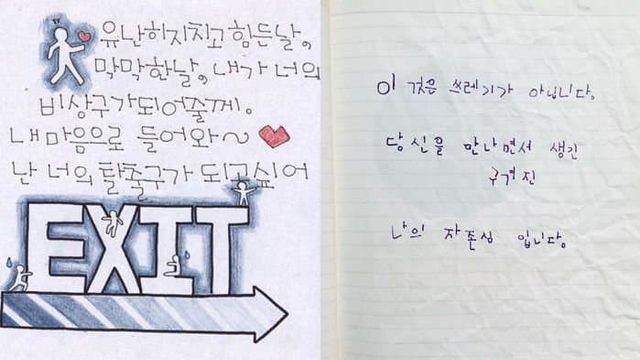 유난히 지치고 힘든날,
막막한날, 내가 너의
비상구가 되어줄게.
내 마음으로 들어와~
난 너의 탈출구가 되고싶어
EXIT
이 것은 쓰레기가 아닙니다.
당신을 만나면서 생긴
구겨진
나의 자존심 입니다.